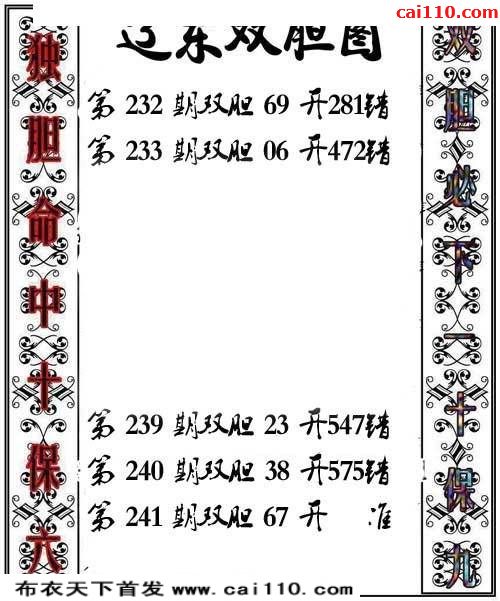 彩摇网 cai110.com
辽东双胆图
第 232 期双胆 69 开281错
第 233 期双胆 06 开472错
第 239 期双胆 23 开547错
第 240 期双胆 38 开575错
第 241 期双胆 67 开 准
独胆命中十保六
双胆必下一十保九
布衣天下首发 www.cai110.com